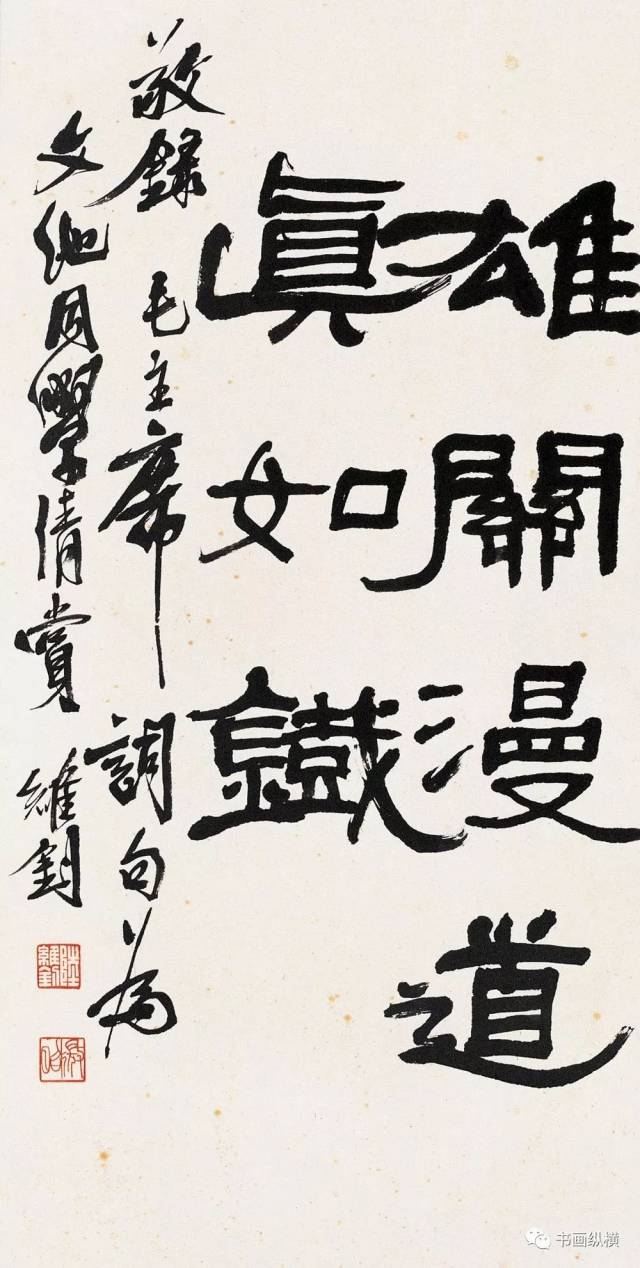 雄關漫道
眞如鐵
敬錄 毛主席 詞句為
文 同學清賞 維釗
陸維釗
书画纵横